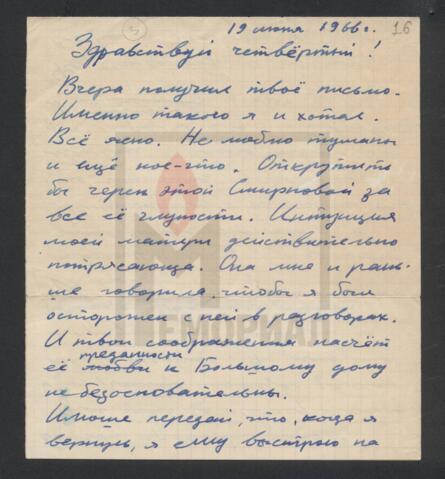 3
19 июня 1966 г.
16
Здравствуй четвёртый!
Вчера получил твоё письмо.
Именно такого я и хотел.
Всё ясно. Не люблю туманы
и ещё кое-что. Открутить
бы череп этой Смирновой за
все её глупости. Интуиция
моей матери действительно
потрясающа. Она мне и рань-
ше говорила, чтобы я был
осторожен с ней в разговорах.
И твои соображения насчёт
преданности
её любви к Большому дому
не безосновательны.
Имоше передай, что, когда я
вернусь, я ему выстрою на
МЕМОРИАЛ